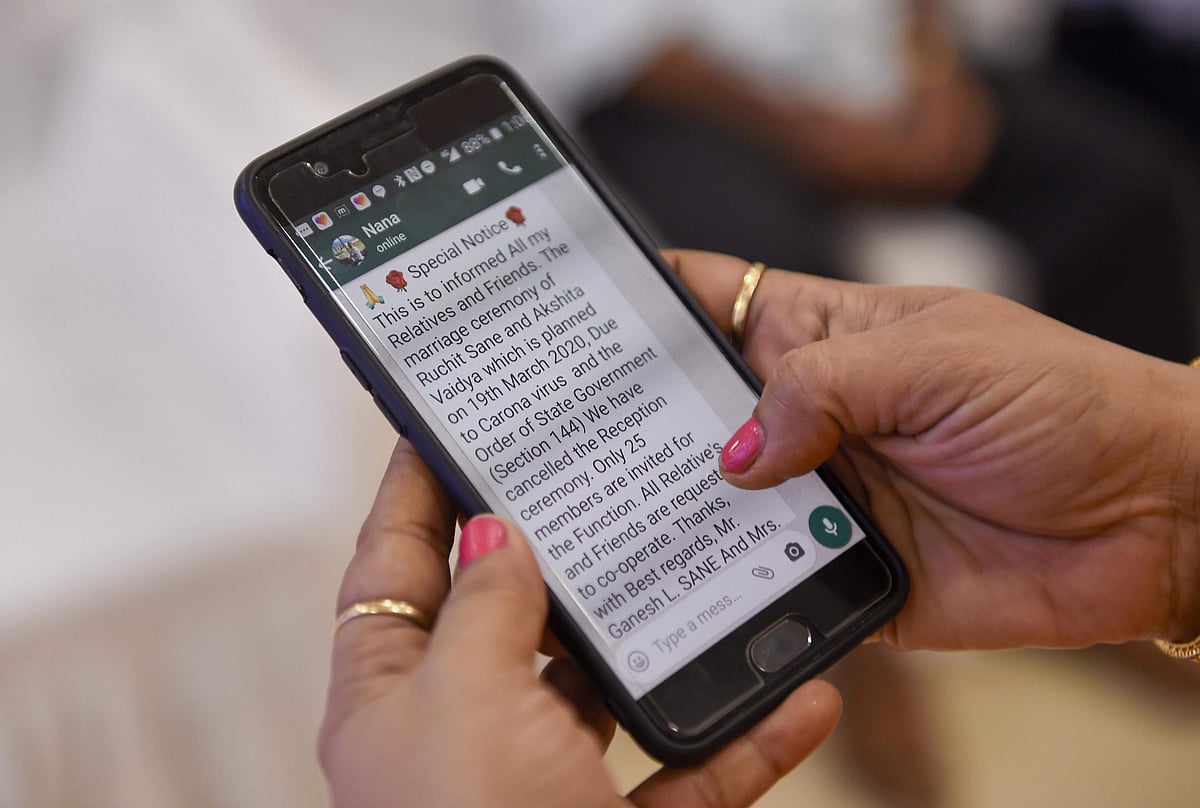 88%
Nana
online
🙏🌹 Special Notice 🌹
This is to informed All my
Relatives and Friends. The
marriage ceremony of
Ruchit Sane and Akshita
Vaidya which is planned
on 19th March 2020, Due
to Carona virus and the
Order of State Government
(Section 144) We have
cancelled the Reception
ceremony. Only 25
members are invited for
the Function. All Relative's
and Friends are request
to co-operate. Thanks,
with Best regards, Mr.
Ganesh L. SANE And Mrs.
Type a mess...